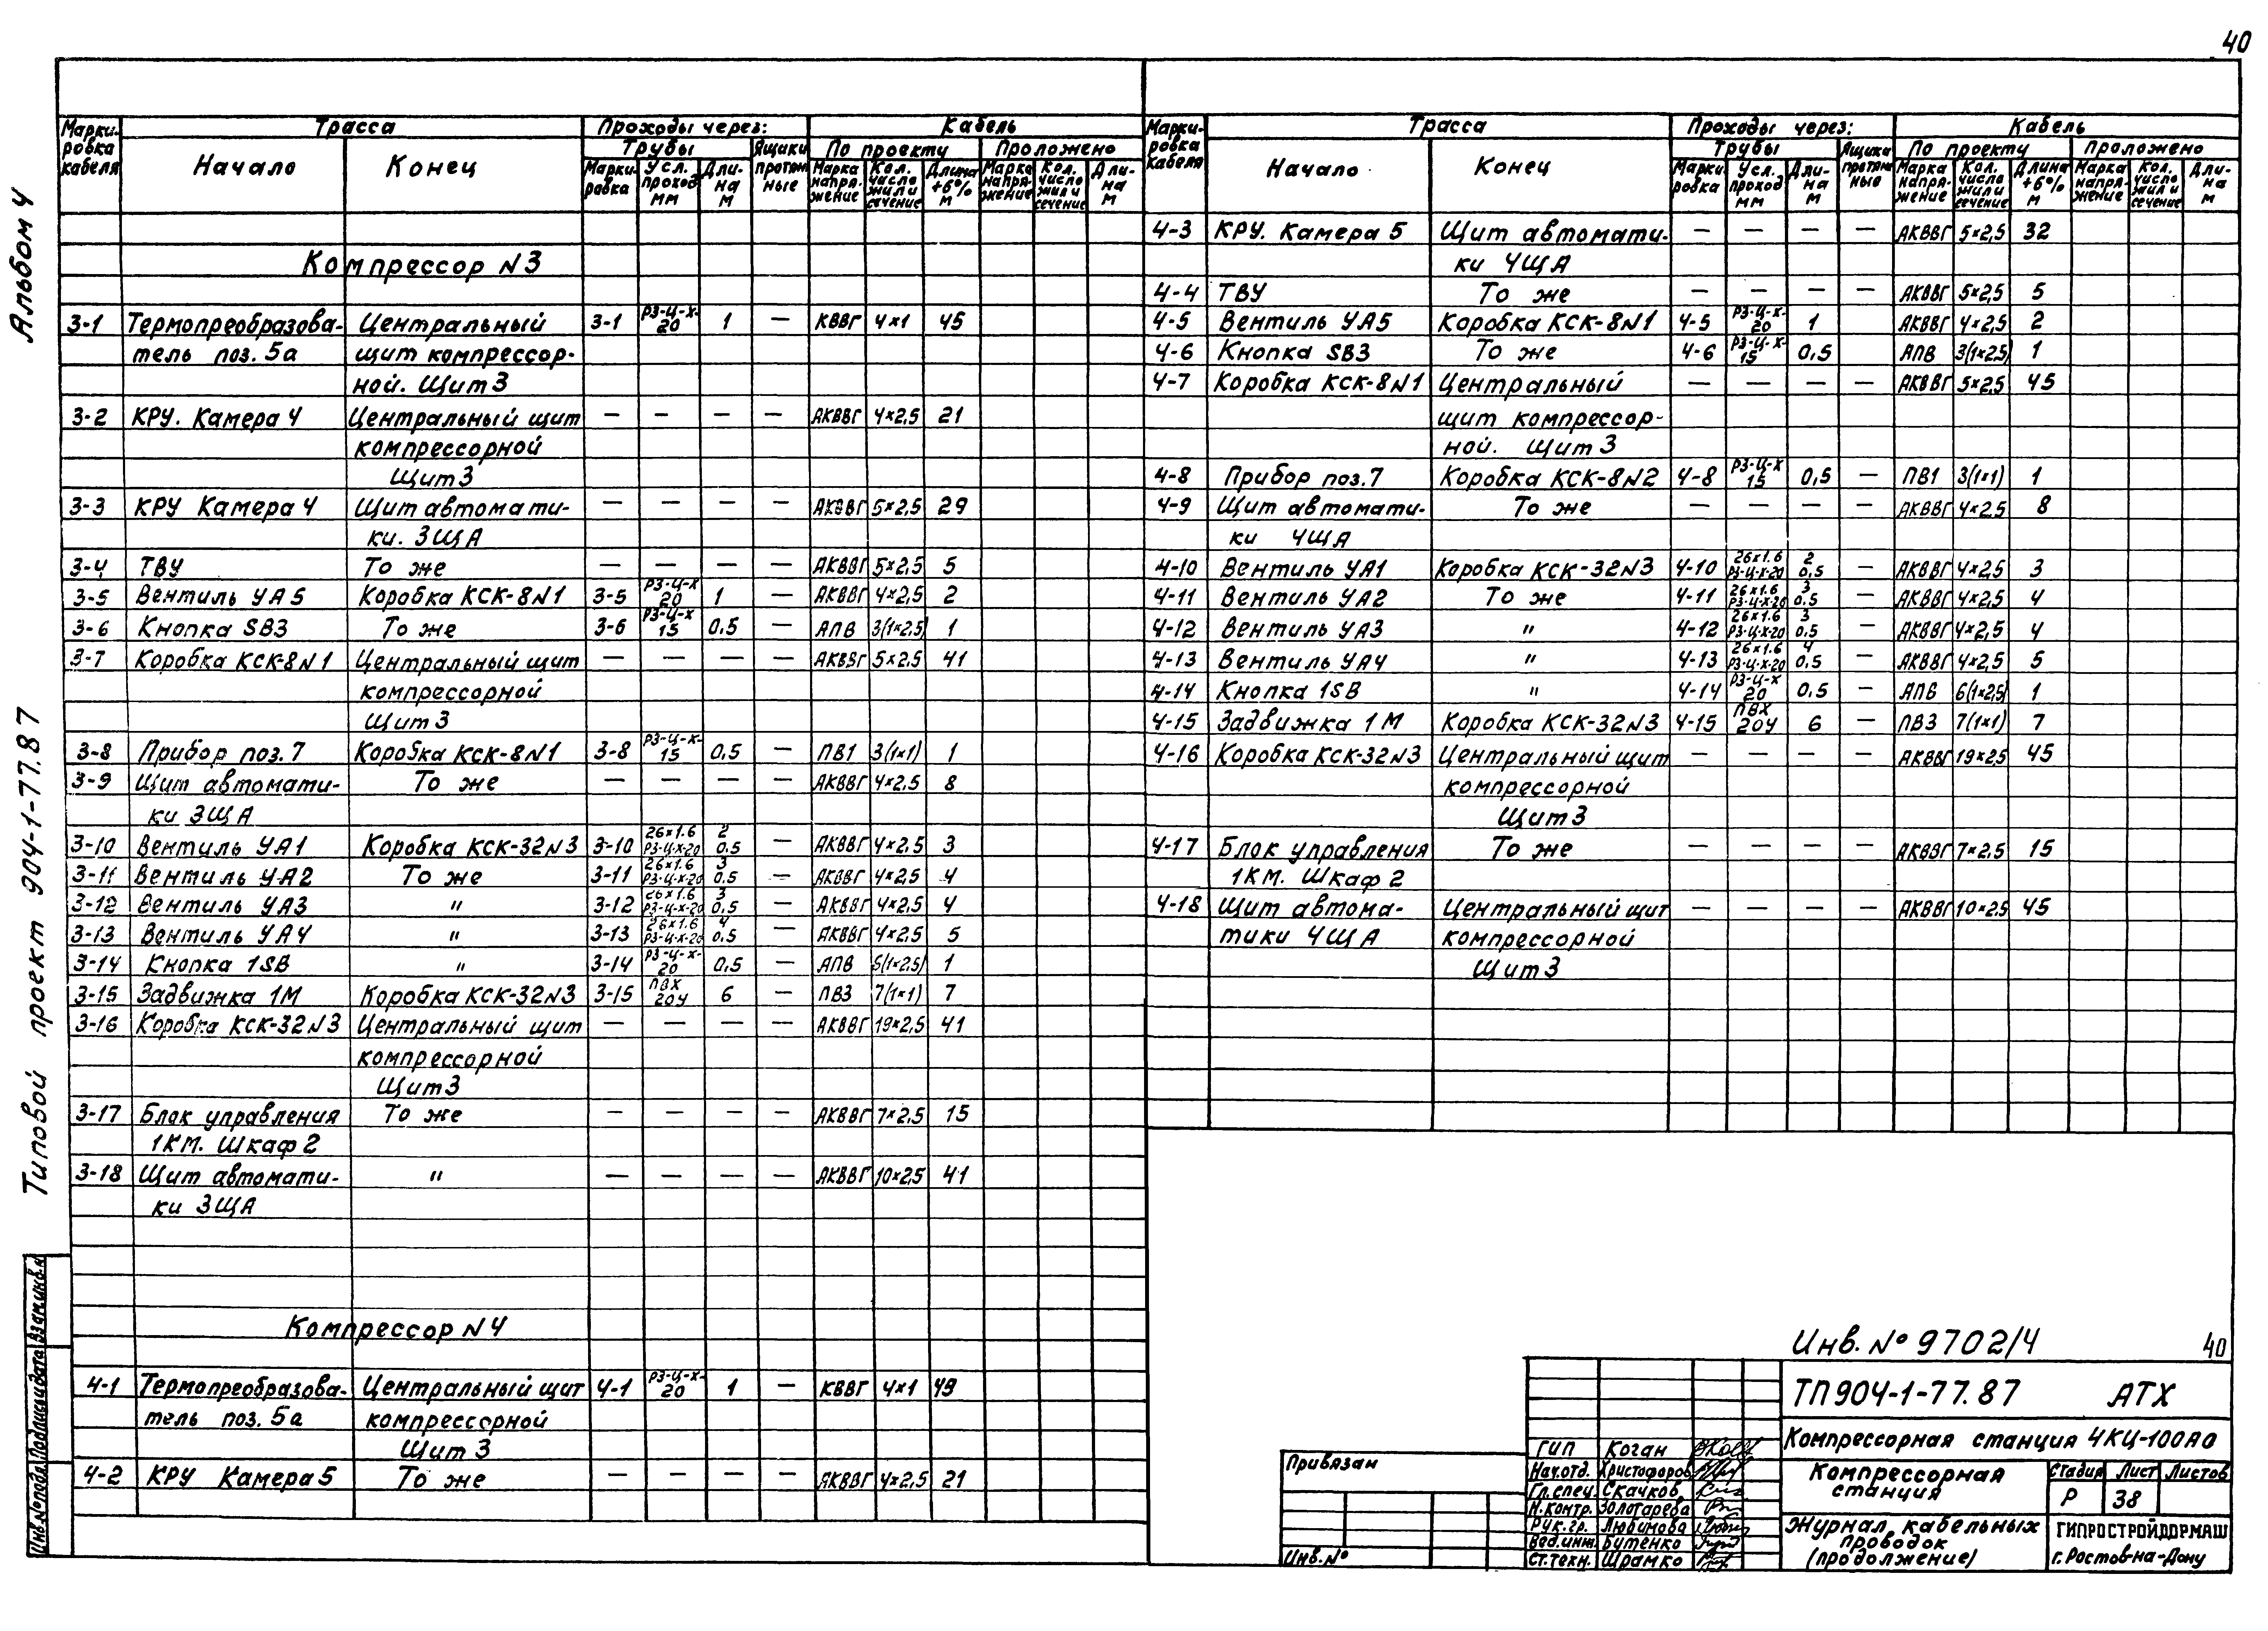 40
Альбом 4
Типовой проект 904-1-77.87
Марки-ровка кабеля | Трасса | Проходы через: | Кабель
Начало | Конец | Трубы | Ящики протяж ные | По проекту | Проложено
Марки-ровка | Усл. проход мм | Дли-на м | Марка напря-жение | Кол. число жил и сечение | Длина +6% м | Марка напря-жение | Кол. число жил и сечение | Дли-на м
Компрессор N3
3-1 | Термопреобразова- | Центральный | 3-1 | РЗ-Ц-Х-20 | 1 | — | КВВГ | 4×1 | 45
тель поз. 5а | щит компрессор-
ной. Щит 3
3-2 | КРУ. Камера 4 | Центральный щит | — | — | — | — | АКВВГ | 4×2,5 | 21
компрессорной
Щит 3
3-3 | КРУ Камера 4 | Щит автомати- | — | — | — | — | АКВВГ | 5×2,5 | 29
ки. 3ЩА
3-4 | ТВУ | То же | — | — | — | — | АКВВГ | 5×2,5 | 5
3-5 | Вентиль УА5 | Коробка КСК-8N1 | 3-5 | РЗ-Ц-Х 20 | 1 | — | АКВВГ | 4×2,5 | 2
3-6 | Кнопка SB3 | То же | 3-6 | РЗ-Ц-Х 15 | 0,5 | — | АПВ | 3(1×2,5) | 1
3-7 | Коробка КСК-8N1 | Центральный щит | — | — | — | — | АКВВГ | 5×2,5 | 41
компрессорной
Щит 3
3-8 | Прибор поз. 7 | Коробка КСК-8N1 | 3-8 | РЗ-Ц-Х-15 | 0,5 | — | ПВ1 | 3(1×1) | 1
3-9 | Щит автомати- | То же | — | — | — | — | АКВВГ | 4×2,5 | 8
ки 3ЩА
3-10 | Вентиль УА1 | Коробка КСК-32N3 | 3-10 | 26×1.6 РЗ-Ц-Х-20 | 2 0.5 | — | АКВВГ | 4×2,5 | 3
3-11 | Вентиль УА2 | То же | 3-11 | 26×1.6 РЗ-Ц-Х-20 | 3 0.5 | — | АКВВГ | 4×2,5 | 4
3-12 | Вентиль УА3 | " | 3-12 | 26×1.6 РЗ-Ц-Х-20 | 3 0,5 | — | АКВВГ | 4×2,5 | 4
3-13 | Вентиль УА4 | " | 3-13 | 26×1.6 РЗ-Ц-Х-20 | 4 0.5 | — | АКВВГ | 4×2,5 | 5
3-14 | Кнопка 1SB | " | 3-14 | РЗ-Ц-Х-20 | 0,5 | — | АПВ | 6(1×2,5) | 1
3-15 | Задвижка 1М | Коробка КСК-32N3 | 3-15 | ПВХ 20У | 6 | — | ПВ3 | 7(1×1) | 7
3-16 | Коробка КСК-32N3 | Центральный щит | — | — | — | — | АКВВГ | 19×2,5 | 41
компрессорной
Щит 3
3-17 | Блок управления | То же | — | — | — | — | АКВВГ | 7×2,5 | 15
1КМ. Шкаф 2
3-18 | Щит автомати- | " | — | — | — | — | АКВВГ | 10×2,5 | 41
ки 3ЩА
Компрессор N4
4-1 | Термопреобразова- | Центральный щит | 4-1 | РЗ-Ц-Х-20 | 1 | — | КВВГ | 4×1 | 49
тель поз. 5а | компрессорной
Щит 3
4-2 | КРУ Камера 5 | То же | — | — | — | — | АКВВГ | 4×2,5 | 21
Марки-ровка кабеля | Трасса | Проходы через: | Кабель
Начало | Конец | Трубы | Ящики протяж ные | По проекту | Проложено
Марки ровка | Усл. проход мм | Дли-на м | Марка напря-жение | Кол. число жил и сечение | Длина +6% м | Марка напря-жение | Кол. число жил и сечение | Дли-на м
4-3 | КРУ. Камера 5 | Щит автомати- | — | — | — | — | АКВВГ | 5×2,5 | 32
ки 4ЩА
4-4 | ТВУ | То же | — | — | — | — | АКВВГ | 5×2,5 | 5
4-5 | Вентиль УА5 | Коробка КСК-8N1 | 4-5 | РЗ-Ц-Х-20 | 1 | — | АКВВГ | 4×2,5 | 2
4-6 | Кнопка SB3 | То же | 4-6 | РЗ-Ц-Х-15 | 0,5 | — | АПВ | 3(1×2,5) | 1
4-7 | Коробка КСК-8N1 | Центральный | — | — | — | — | АКВВГ | 5×2,5 | 45
щит компрессор-
ной. Щит 3
4-8 | Прибор поз. 7 | Коробка КСК-8N2 | 4-8 | РЗ-Ц-Х 15 | 0,5 | — | ПВ1 | 3(1×1) | 1
4-9 | Щит автомати- | То же | — | — | — | — | АКВВГ | 4×2,5 | 8
ки 4ЩА
4-10 | Вентиль УА1 | Коробка КСК-32N3 | 4-10 | 26×1.6 РЗ-Ц-Х-20 | 2 0,5 | — | АКВВГ | 4×2,5 | 3
4-11 | Вентиль УА2 | То же | 4-11 | 26×1.6 РЗ-Ц-Х-20 | 3 0.5 | — | АКВВГ | 4×2,5 | 4
4-12 | Вентиль УА3 | " | 4-12 | 26×1.6 РЗ-Ц-Х-20 | 3 0.5 | — | АКВВГ | 4×2,5 | 4
4-13 | Вентиль УА4 | " | 4-13 | 26×1.6 РЗ-Ц-Х-20 | 4 0,5 | — | АКВВГ | 4×2,5 | 5
4-14 | Кнопка 1SB | " | 4-14 | РЗ-Ц-Х 20 | 0.5 | — | АПВ | 6(1×2,5) | 1
4-15 | Задвижка 1М | Коробка КСК-32N3 | 4-15 | ПВХ 20У | 6 | — | ПВ3 | 7(1×1) | 7
4-16 | Коробка КСК-32N3 | Центральный щит | — | — | — | — | АКВВГ | 19×2,5 | 45
компрессорной
Щит 3
4-17 | Блок управления | То же | — | — | — | — | АКВВГ | 7×2,5 | 15
1КМ. Шкаф 2
4-18 | Щит автома- | Центральный щит | — | — | — | — | АКВВГ | 10×2,5 | 45
тики 4ЩА | компрессорной
Щит 3
Инв. № 9702/4 40
ТП904-1-77.87 АТХ
Компрессорная станция 4КЦ-100А0
Компрессорная станция
Стадия | Лист | Листов
Р | 38
Журнал кабельных проводок (продолжение)
ГИПРОСТРОЙДОРМАШ
г. Ростов-на-Дону
ГИП Коган
Нач.отд. Христофоров
Гл.спец. Скачков
Н.контр. Золотарева
Рук.гр. Любимова
Вед.инж. Бутенко
Ст.техн. Шрамко
Привязан
Инв. №
Инв.№подл. Подпись и дата Взам.инв.№